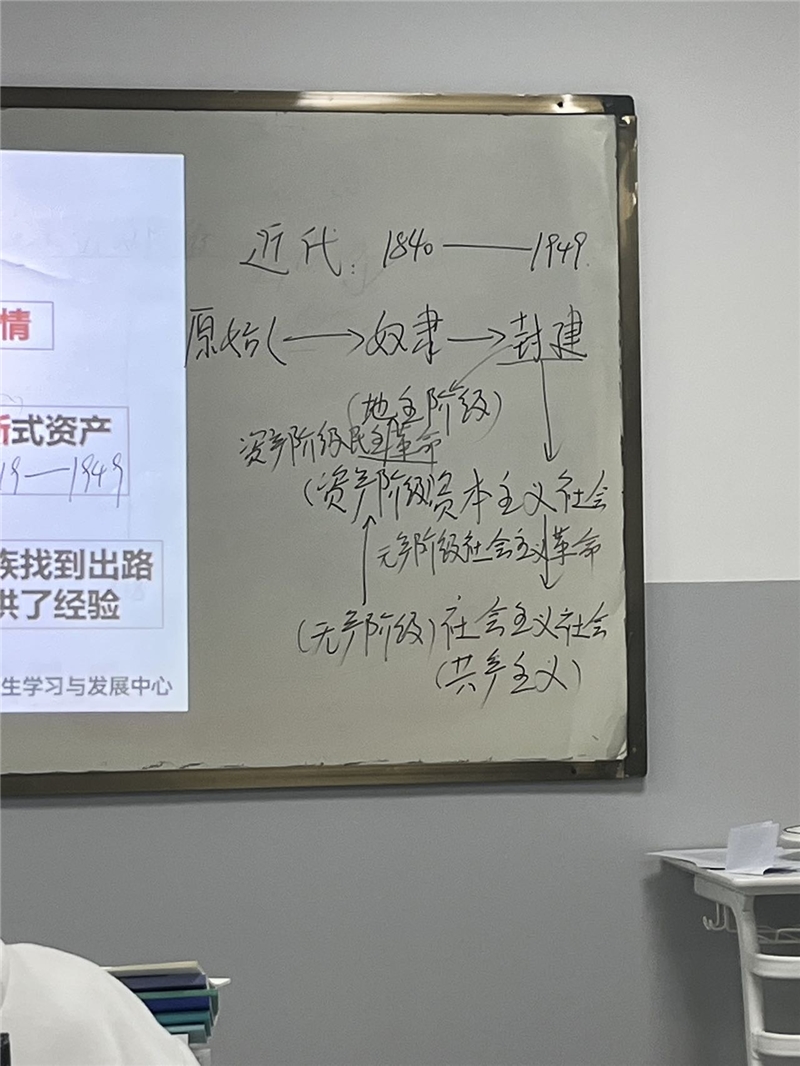 近代：1840——1949.
原始(→奴隶→封建
(地主阶级)
资产阶级民主革命
(资产阶级资本主义社会
无产阶级社会主义革命
(无产阶级)社会主义社会
(共产主义)
情
式资产
19—1949
族找到出路
供了经验
生学习与发展中心